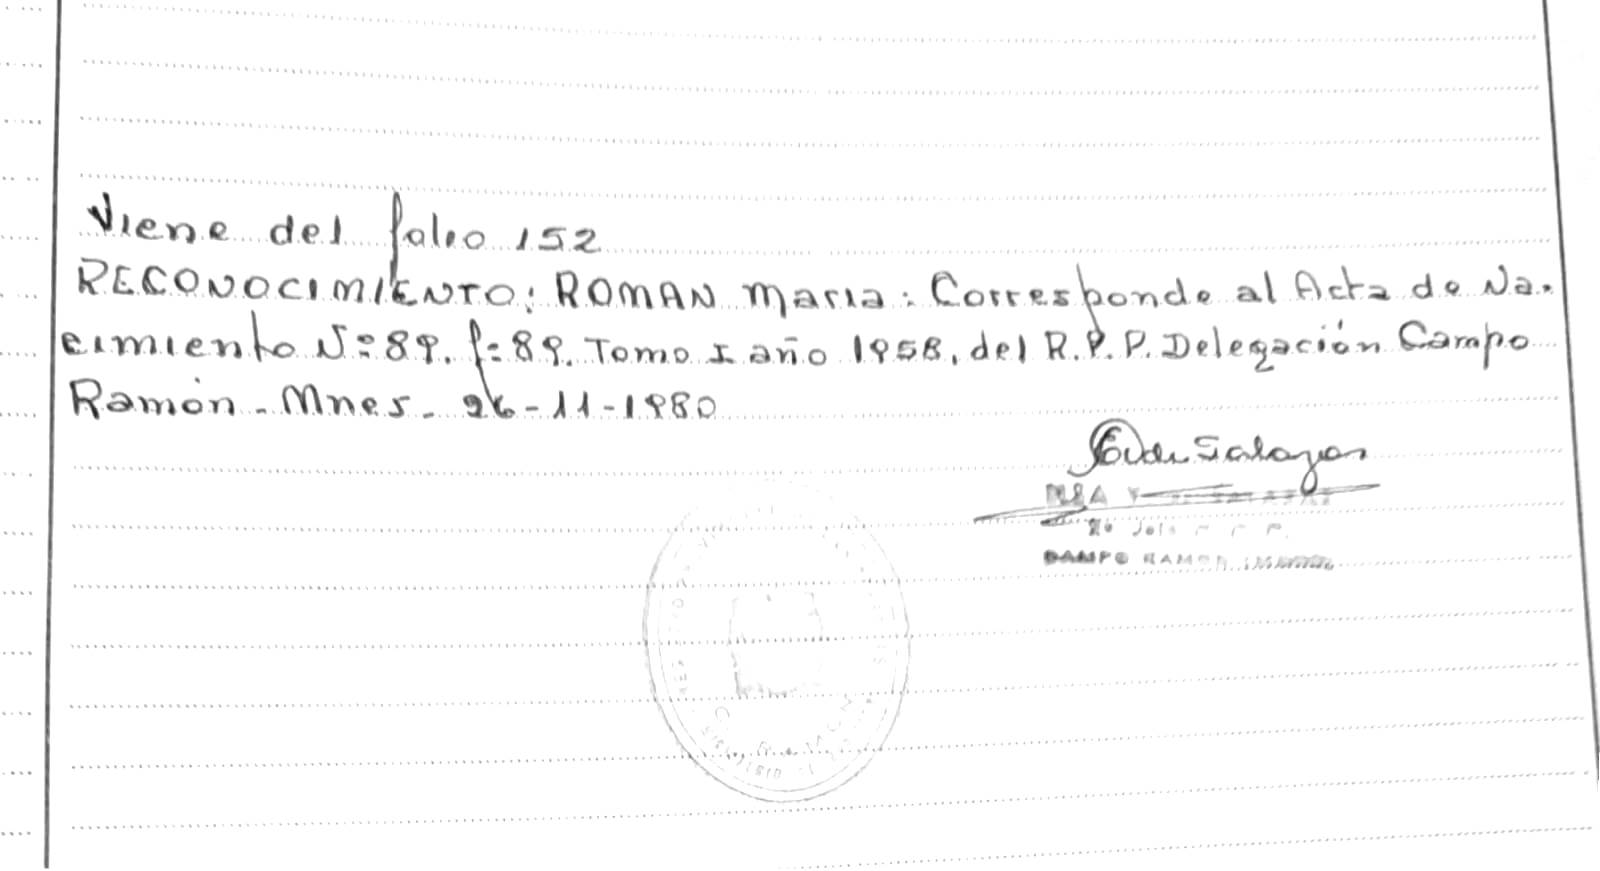 Viene del folio 152
RECONOCIMIENTO: ROMAN Maria: Corresponde al Acta de Na-
cimiento Nº 89. f= 89. Tomo I año 1958, del R.P.P. Delegación Campo
Ramón - Mnes - 26-11-1980
de Salazar
CAMPO RAMON